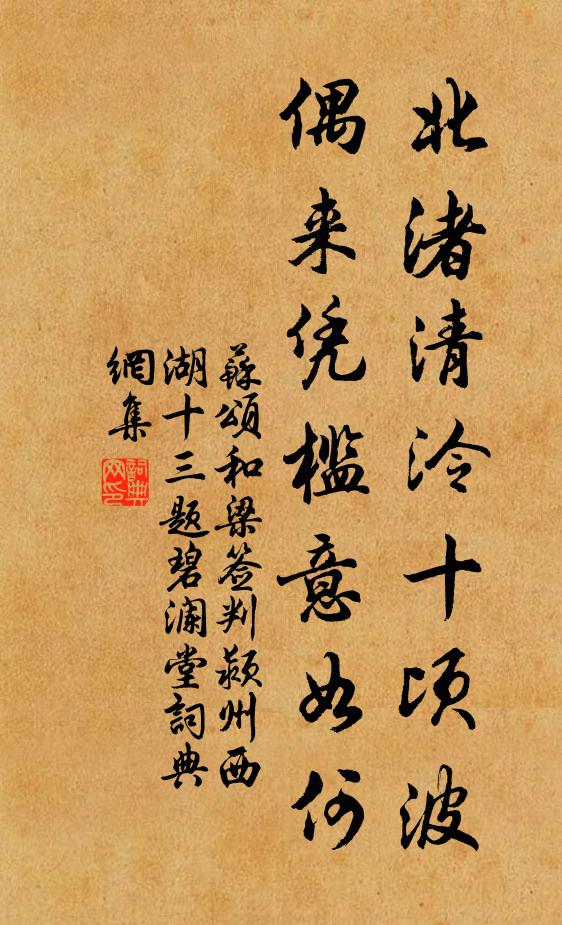 北渚清泠十顷波
偶来凭槛意如何
蘇頌和梁签判颍州西
湖十三题碧澜堂詞典
網集
詞典
网印